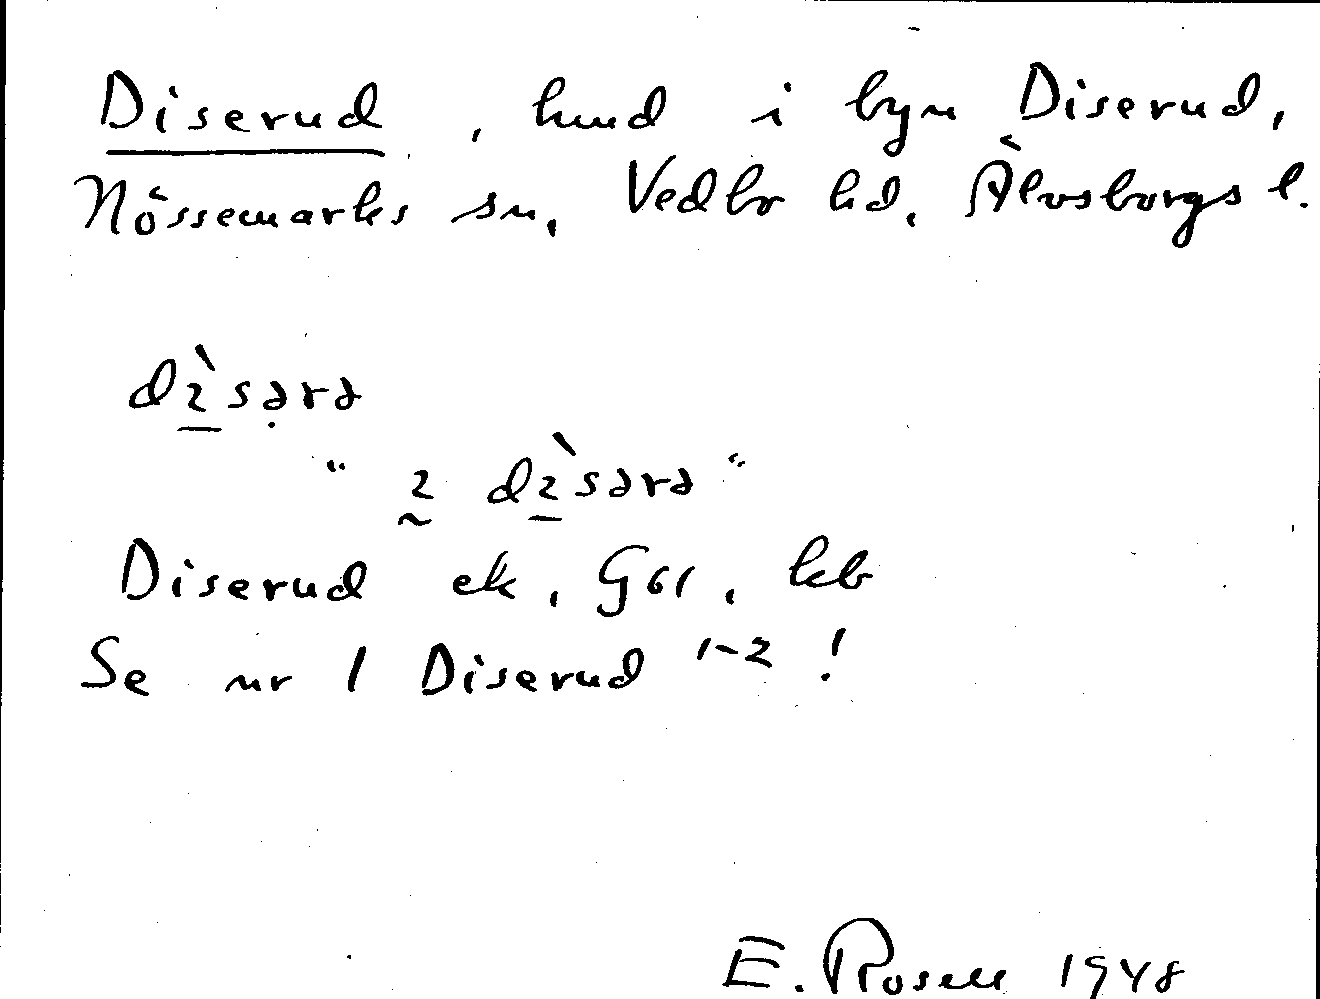 Diserud, hmd i byn Diserud,
Nössemarks sn, Vedbo hd, Älvsborgs l.
dı̀sərə
"ı dı̀sərə"
Diserud ek, Gsr, kb
Se nr 1 Diserud 1-2!
E. Rosell 1948